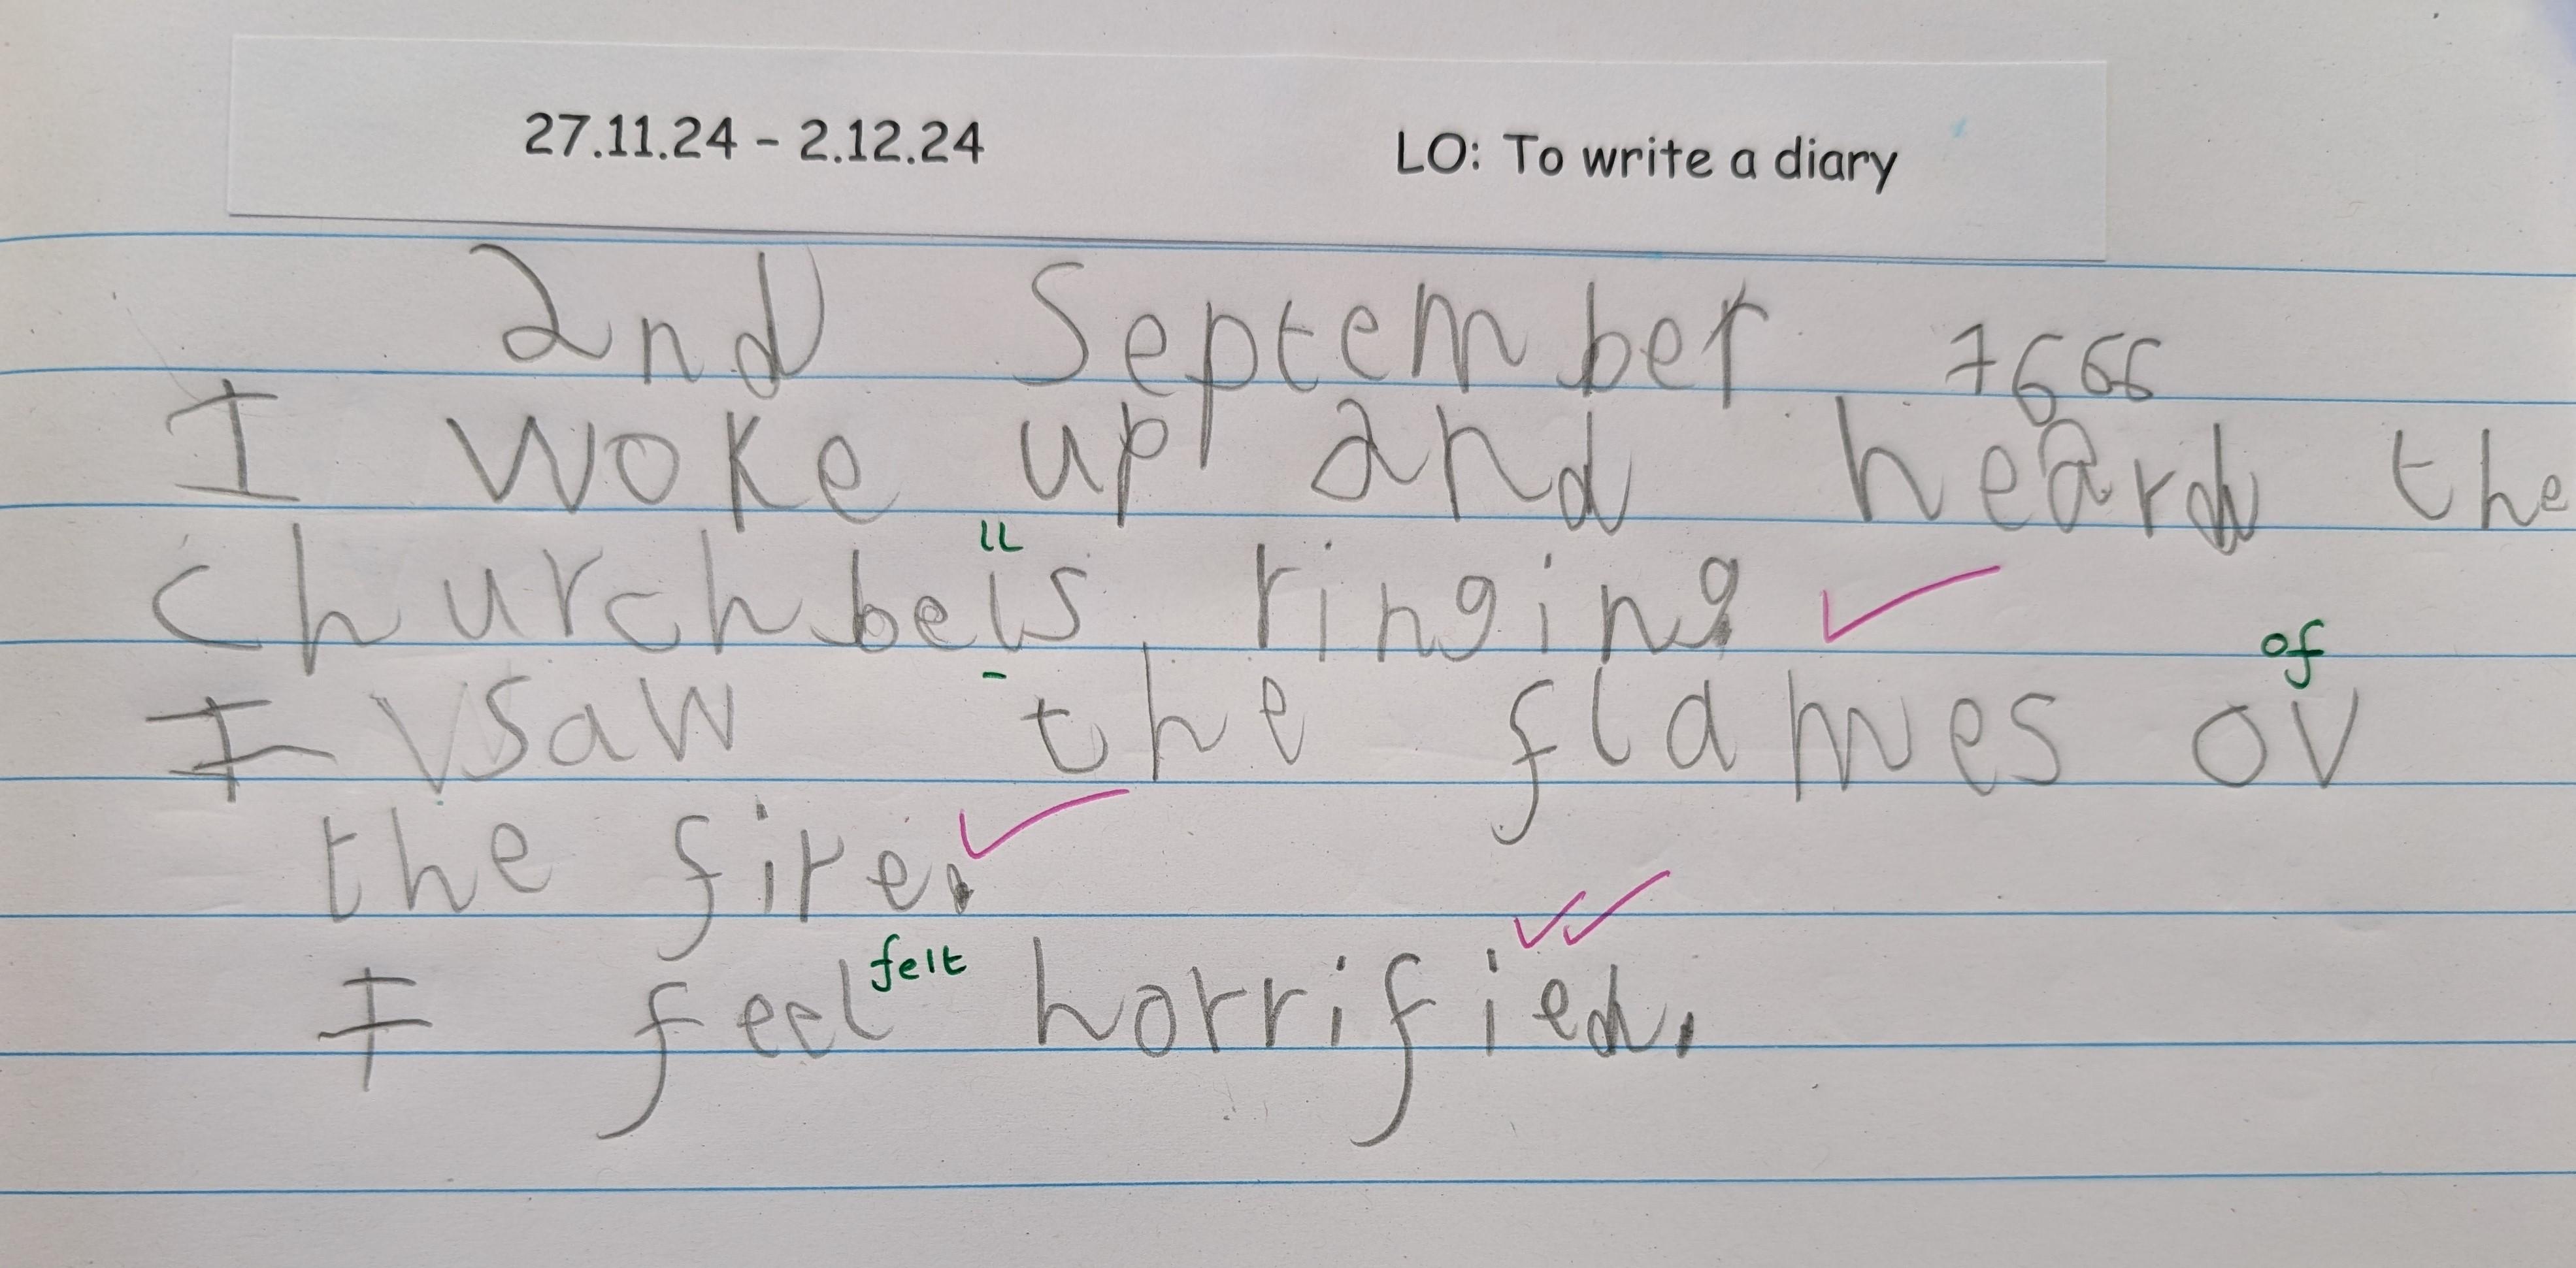 27.11.24 - 2.12.24 LO: To write a diary
2nd September 1666
I woke up and heard the
ll
church bels ringing.
of
I saw the flames ov
the fire.
felt
I feel horrified.